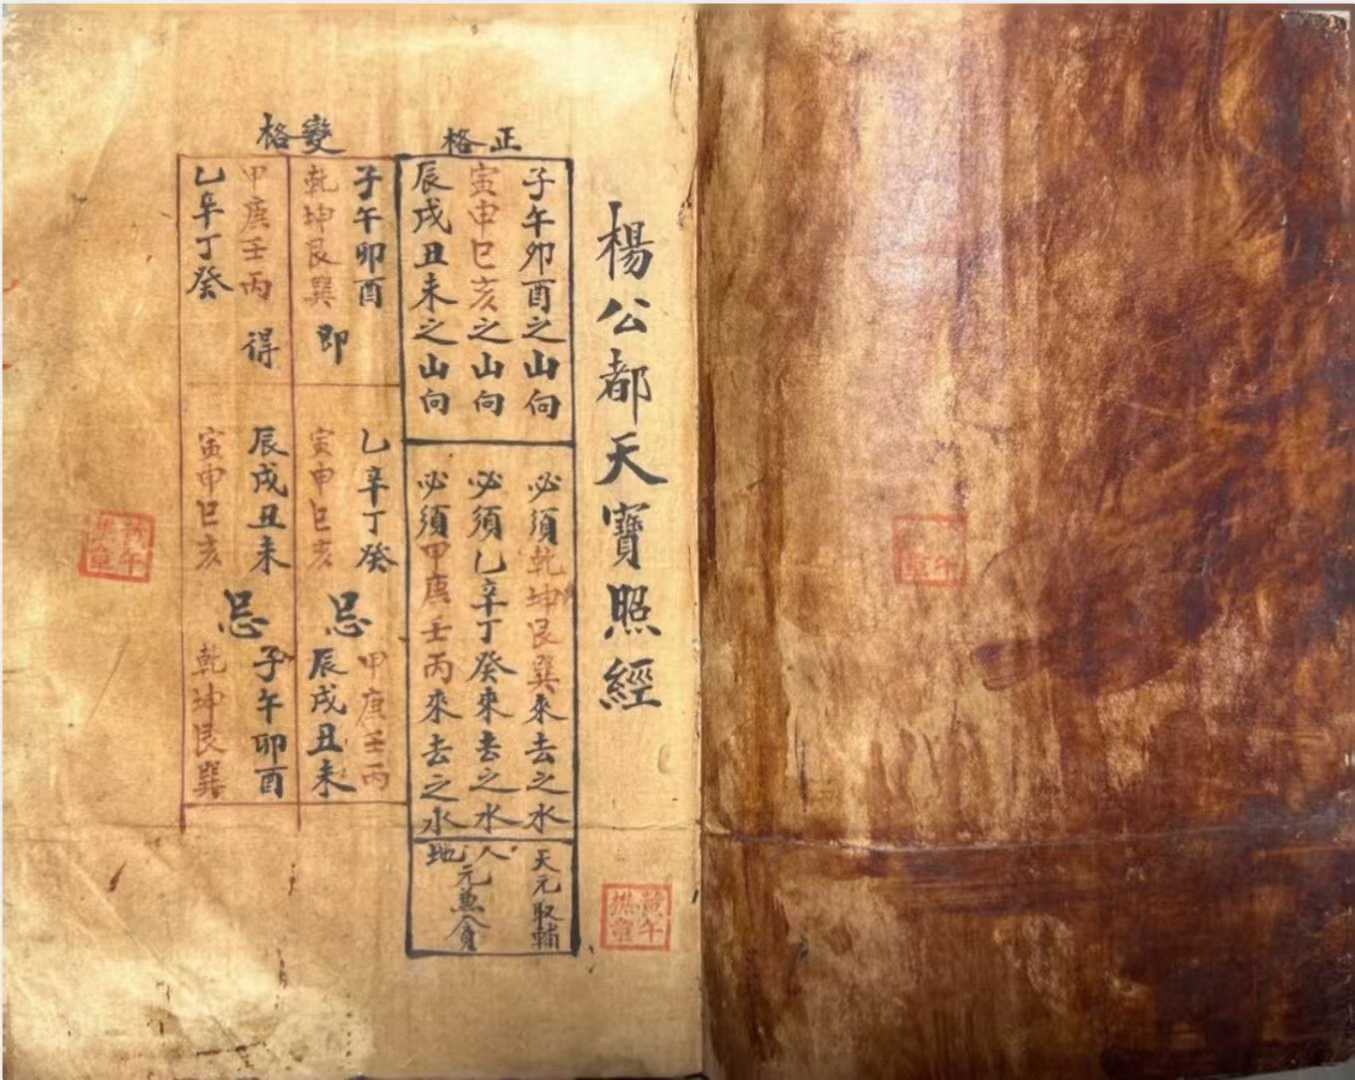 楊公都天寶照經
正格
子午卯酉之山向
必須乾坤艮巽來去之水
天元取輔
寅申巳亥之山向
必須乙辛丁癸來去之水
辰戌丑未之山向
必須甲庚壬丙來去之水
人地元兼貪
變格
子午卯酉
乾坤艮巽
即
乙辛丁癸
寅申巳亥
忌
甲庚壬丙
辰戌丑未
甲庚壬丙
乙辛丁癸
得
辰戌丑未
寅申巳亥
忌
子午卯酉
乾坤艮巽